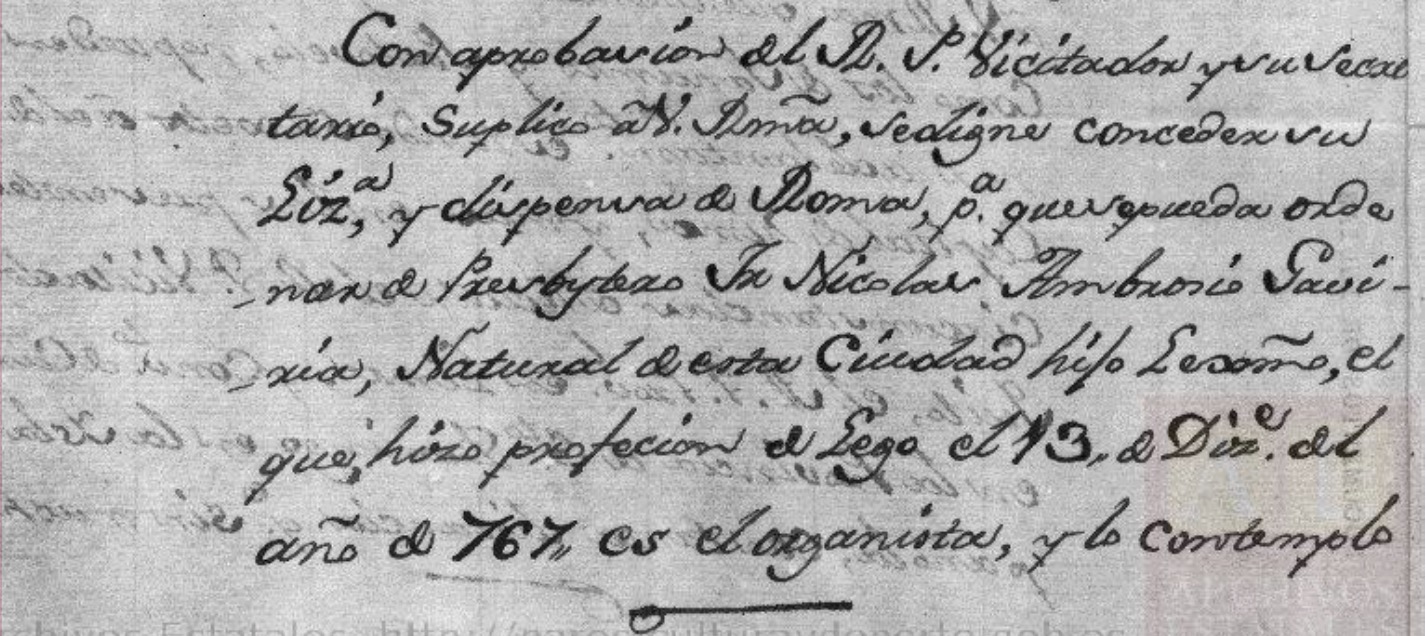 Con aprobasion del R. P. Vicitador y su Secre
tario, Suplico a V. Rmã, se digne conceder su
Liz.ª, y dispensa de Roma, p.ª que se pueda orde
-nar de Presbytero Fr Nicolas Ambrosio Gavi-
-ria, Natural de esta Ciudad hijo Lexᵐᵒ, el
que, hizo profecion de Lego el 13,, de Diz.ᵉ del
año de 767,, es el organista, y lo contemplo